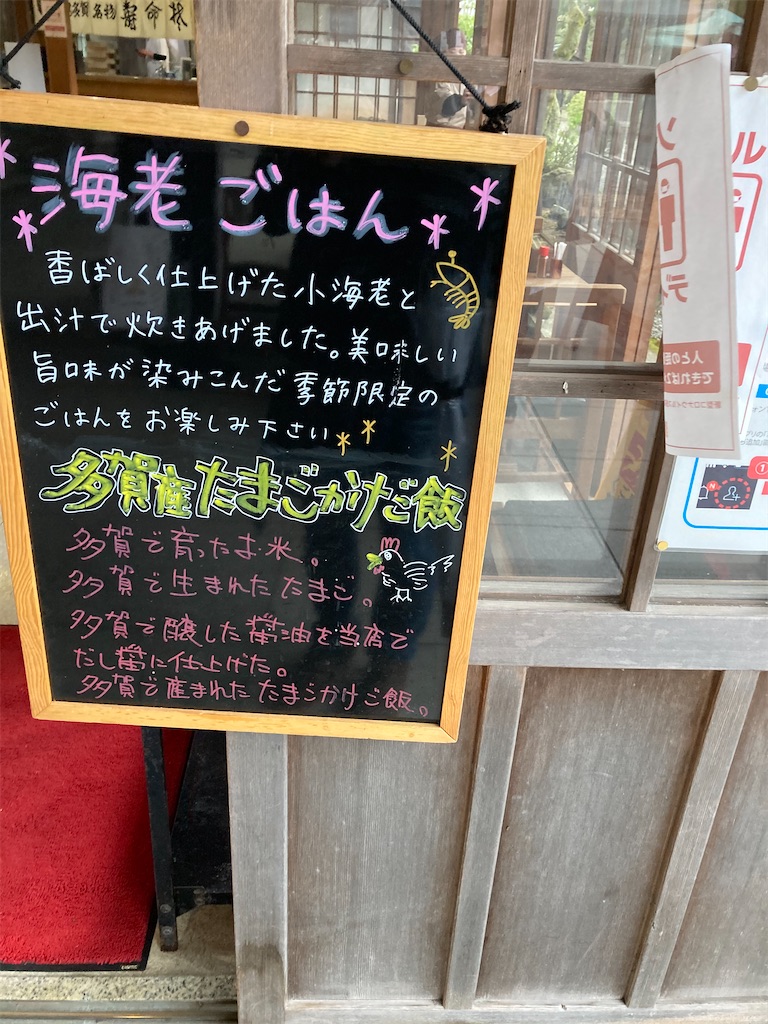 多賀名物 寿命そば
海老ごはん
香ばしく仕上げた小海老と
出汁で炊きあげました。美味しい
旨味が染みこんだ季節限定の
ごはんをお楽しみ下さい
多賀産たまごかけご飯
多賀で育ったお米。
多賀で生まれた たまご。
多賀で醸した醤油を当店で
だし醤に仕上げた。
多賀で産まれた たまごかけご飯。
ル
ソ
デ
人との
できれば